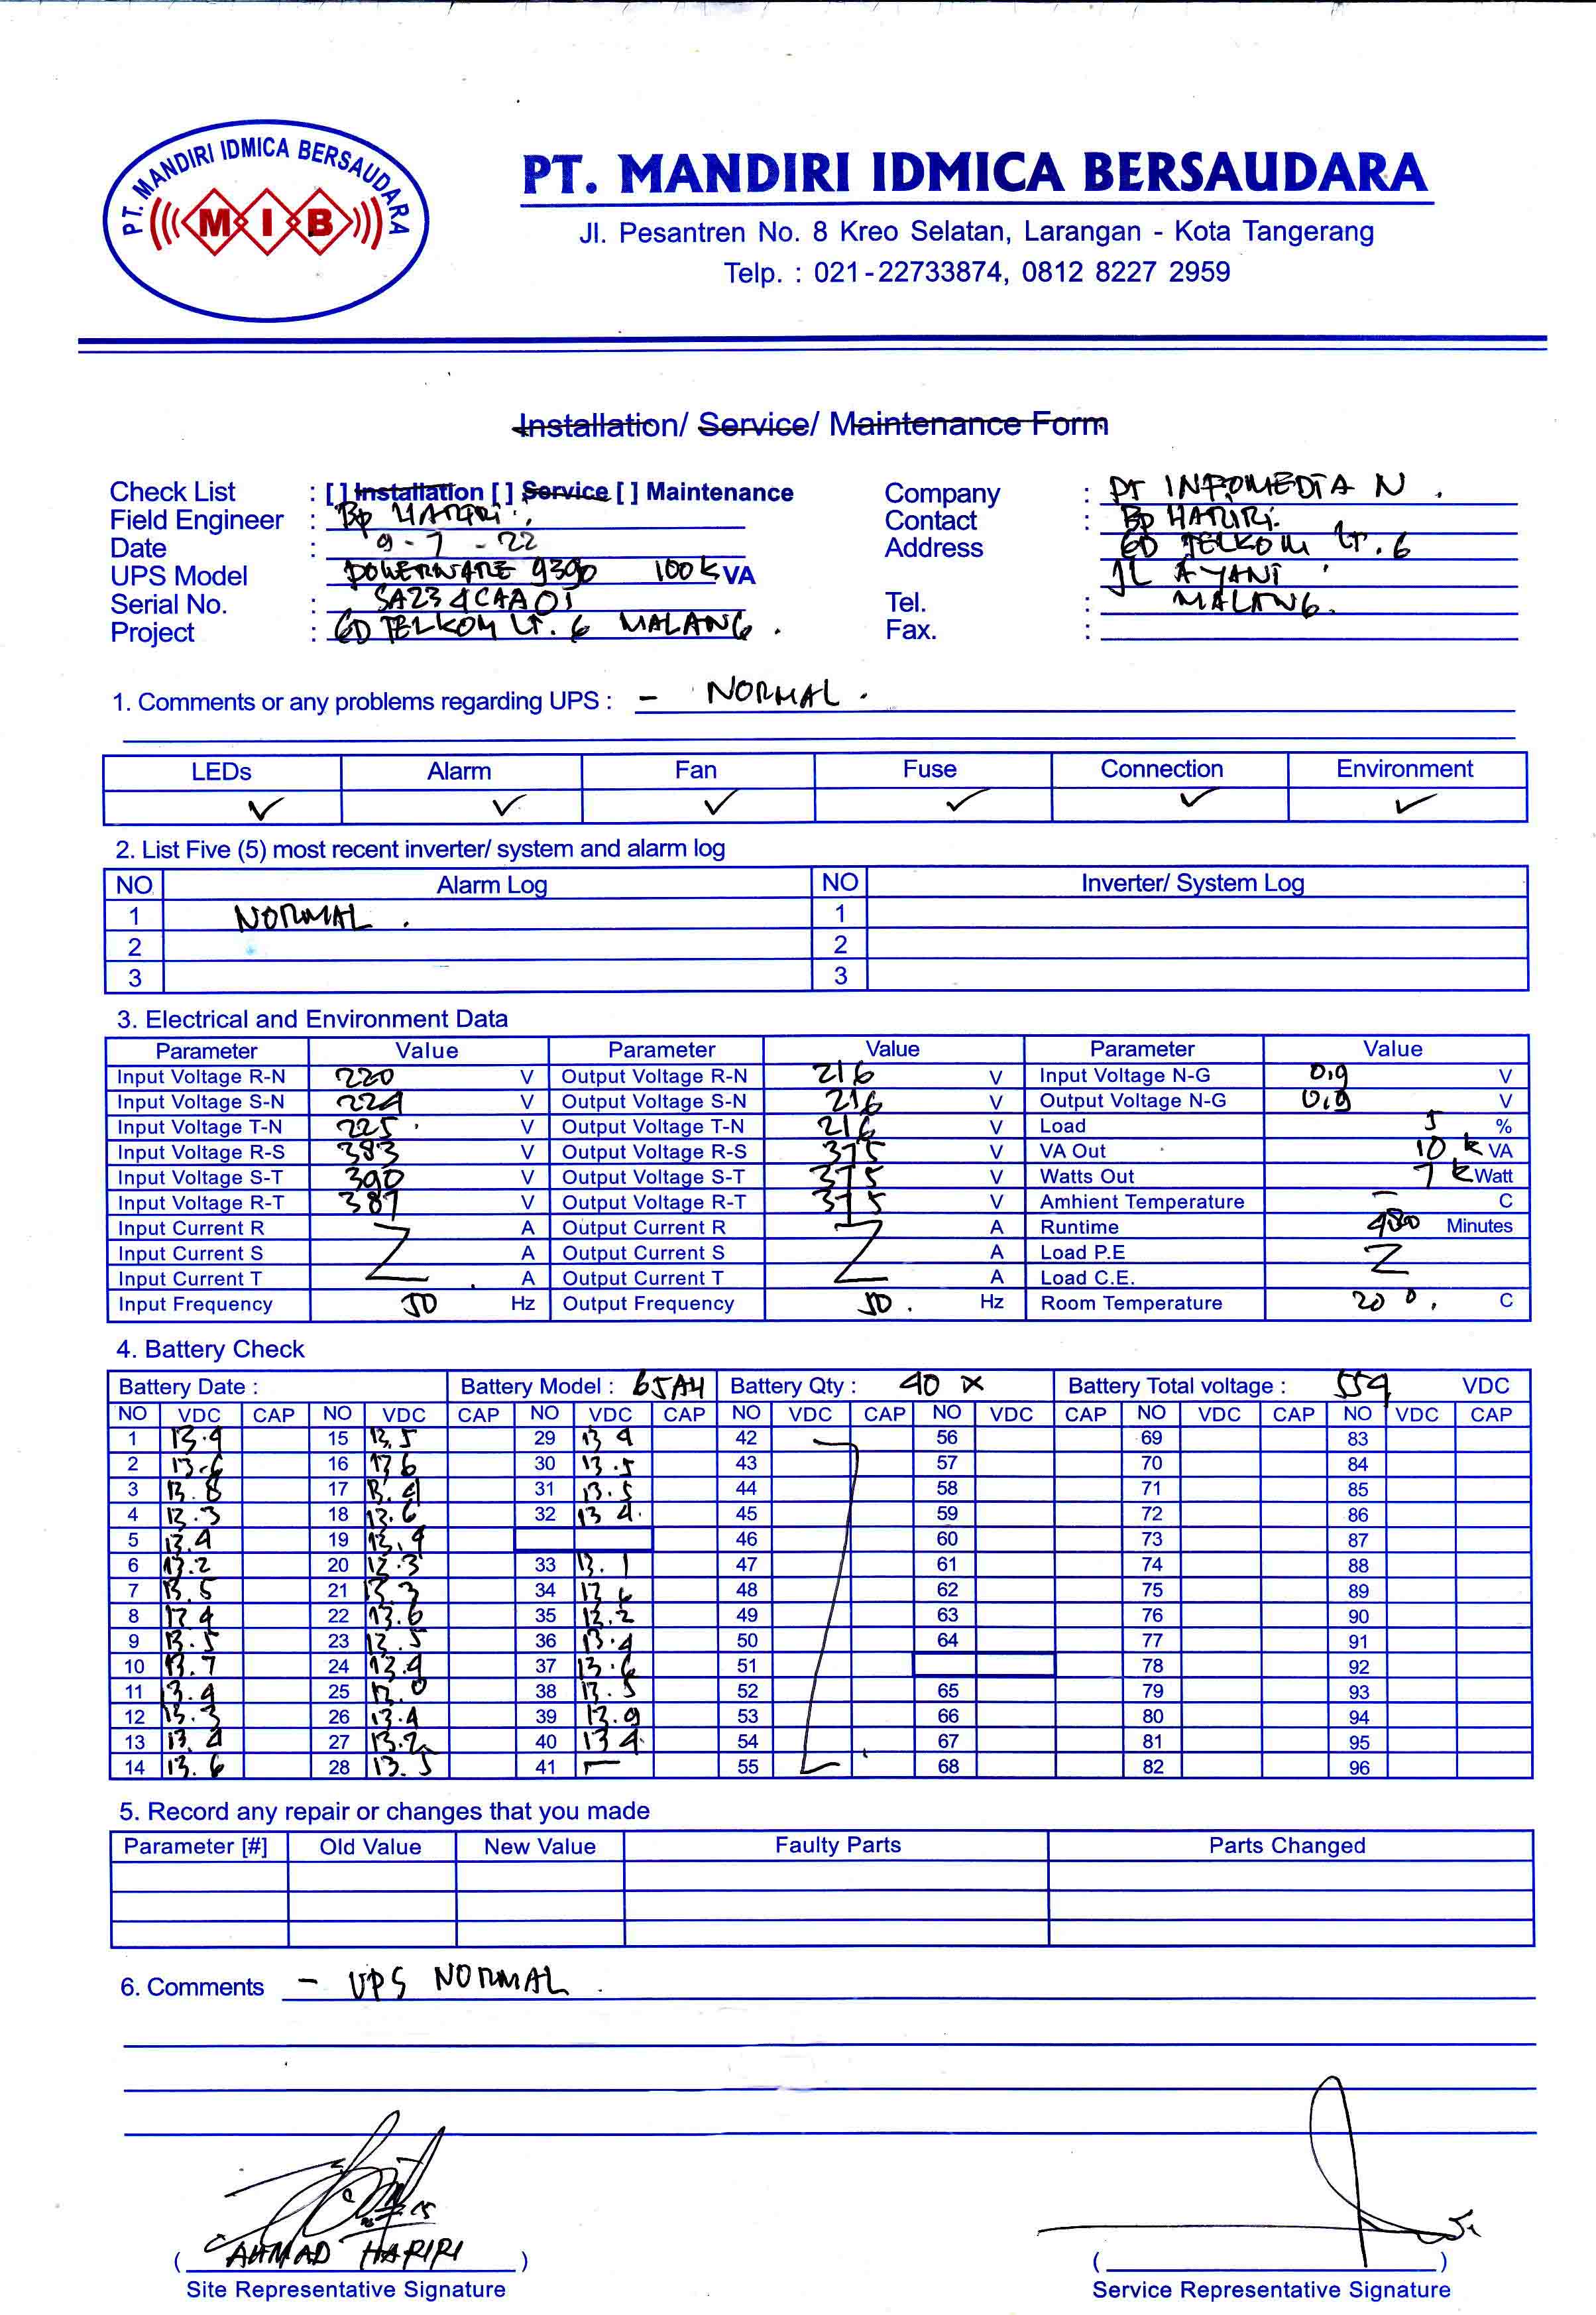 PT. MANDIRI IDMICA BERSAUDARA
MIB
PT. MANDIRI IDMICA BERSAUDARA
Jl. Pesantren No. 8 Kreo Selatan, Larangan - Kota Tangerang
Telp. : 021-22733874, 0812 8227 2959
Installation/ Service/ Maintenance Form
Check List : [ ] Installation [ ] Service [ ] Maintenance Company : PT INFOMEDIA N.
Field Engineer : Bp HARIRI. Contact : Bp HARIRI.
Date : 9-7-22 Address GD TELKOM LT.6
UPS Model POWERWARE 9390 100 k VA JL A YANI
Serial No. : SA234CAA01 Tel. : MALANG.
Project : GD TELKOM LT. 6 MALANG. Fax. :
1. Comments or any problems regarding UPS : - NORMAL.
LEDs Alarm Fan Fuse Connection Environment
✓ ✓ ✓ ✓ ✓ ✓
2. List Five (5) most recent inverter/ system and alarm log
NO Alarm Log NO Inverter/ System Log
1 NORMAL. 1
2 2
3 3
3. Electrical and Environment Data
Parameter Value Parameter Value Parameter Value
Input Voltage R-N 220 V Output Voltage R-N 216 V Input Voltage N-G 0,9 V
Input Voltage S-N 224 V Output Voltage S-N 216 V Output Voltage N-G 0,9 V
Input Voltage T-N 225 V Output Voltage T-N 216 V Load 5 %
Input Voltage R-S 383 V Output Voltage R-S 375 V VA Out 10 k VA
Input Voltage S-T 390 V Output Voltage S-T 375 V Watts Out 7 k Watt
Input Voltage R-T 387 V Output Voltage R-T 375 V Amhient Temperature - C
Input Current R A Output Current R A Runtime 480 Minutes
Input Current S A Output Current S A Load P.E
Input Current T A Output Current T A Load C.E.
Input Frequency 50 Hz Output Frequency 50. Hz Room Temperature 20 °. C
4. Battery Check
Battery Date : Battery Model : 65AH Battery Qty : 40 x Battery Total voltage : 554 VDC
NO VDC CAP NO VDC CAP NO VDC CAP NO VDC CAP NO VDC CAP NO VDC CAP NO VDC CAP
1 13.4 15 13.5 29 13 4 42 56 69 83
2 13.6 16 13 6 30 13.5 43 57 70 84
3 13.8 17 13.4 31 13.5 44 58 71 85
4 13.3 18 13.6 32 13 4. 45 59 72 86
5 13.4 19 13.4 46 60 73 87
6 13.2 20 13.3 33 13.1 47 61 74 88
7 13.5 21 13.3 34 13 6 48 62 75 89
8 13 4 22 13.6 35 13.2 49 63 76 90
9 13.5 23 13.5 36 13.4 50 64 77 91
10 13.7 24 13.4 37 13.6 51 78 92
11 13.4 25 13.0 38 13.5 52 65 79 93
12 13.3 26 13.4 39 13.9 53 66 80 94
13 13.4 27 13.2 40 13 4. 54 67 81 95
14 13.6 28 13.5 41 - 55 68 82 96
5. Record any repair or changes that you made
Parameter [#] Old Value New Value Faulty Parts Parts Changed
6. Comments - UPS NORMAL.
( AHMAD HARIRI ) ( )
Site Representative Signature Service Representative Signature